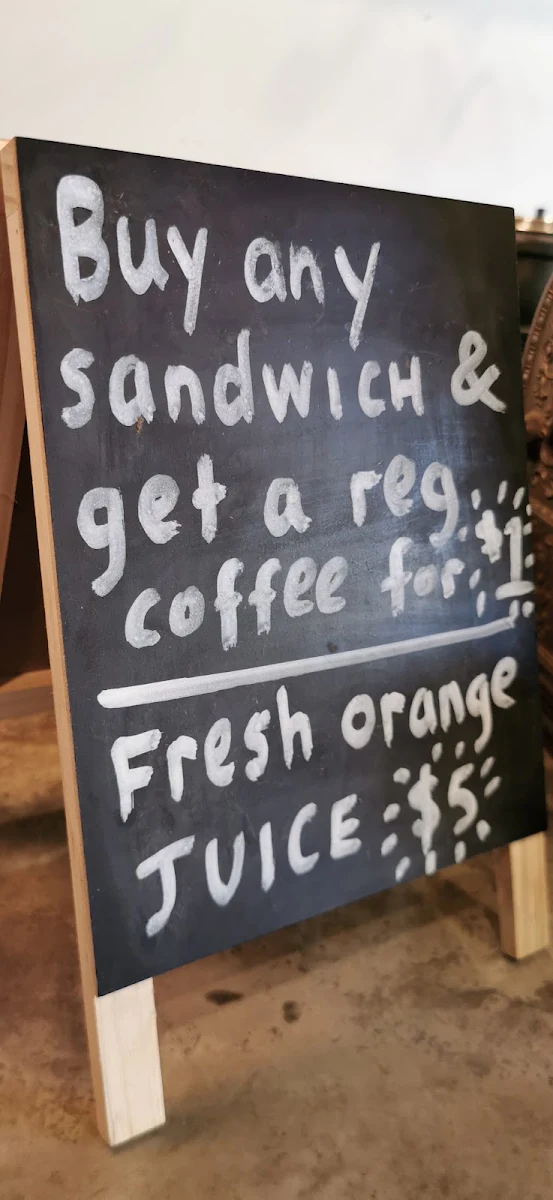 Buy any
sandwICH &
get a reg
coffee for $1
Fresh orange
JUICE $5